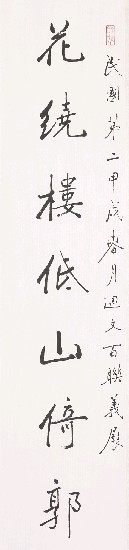 民國第二甲戌春月迴文百聯義展
花繞樓低山倚郭